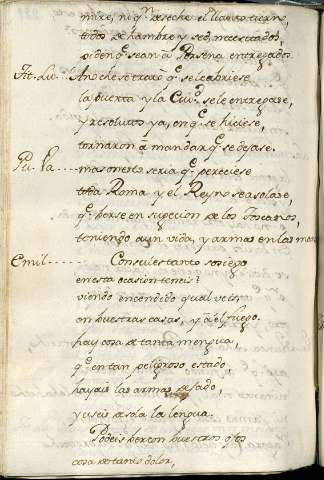 mire, ni q̃ deseche el llanto tierno,
todos de hambre y sed, necesitados,
piden q̃ sean a Porsena entregados.
Tit. Liv... Anoche se trató q̃ se le abriese
la puerta y la Ciu.ᵈ se le entregase,
y resoluto ya, en q̃ se hiciese,
tornaron a mandar q̃ se dejase.
Pu. Va.... mas onesto seria q̃ pereciese
toda Roma y el Reyno se asolase,
q̃ berse en sugecion de los toscanos,
teniendo aun vida, y armas en las manos
Emil..... Consules tanto sosiego
en esta ocasion teneis?
viendo encendido qual veis
en buestras casas, y a el fuego.
hay cosa de tanta mengua,
q̃ en tan peligroso estado,
hayais las armas dejado,
y useis de sola la lengua.
Podeis ber con buestros ojos
cosa de tanto dolor,